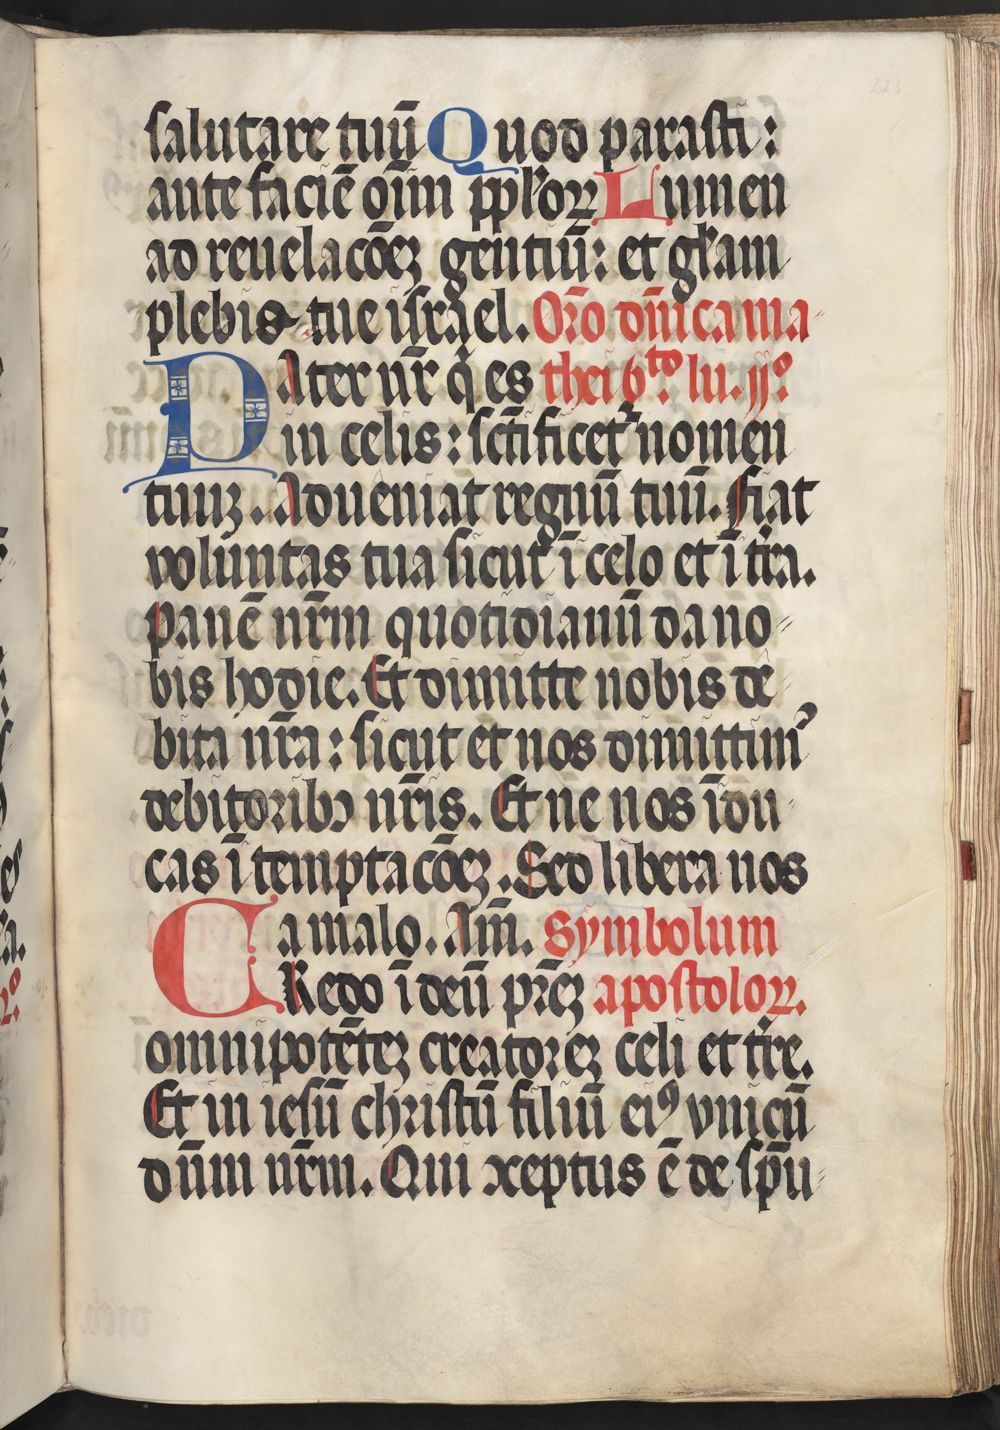 223
salutare tuū Quod parasti:
ante faciē oīm ppl'oꝝ Lumen
ad reuelacōeꝫ gentiū: et gl'am
plebis tue israel. Or̄o dn̄ica ma
Pater nr̄ q̇ es thei 6to: lu. ijo
in celis: sc̄tificet᷑ nomen
tuuꝫ. Adueniat regnū tuū. fiat
voluntas tua sicut ī celo et ī tr̄a.
Panē nr̄m quotidianū da no
bis hodie. Et dimitte nobis de
bita nr̄a: sicut et nos dimittimꝰ
debitoribꝫ nr̄is. Et ne nos īdu
cas ī temptacōeꝫ. Sed libera nos
a malo. Am̄. Symbolum
CRedo ī deū pr̄eꝫ apostoloꝝ.
omnipotēteꝫ creatoreꝫ celi et tr̄e.
Et in iesū christū filiū eiꝰ vnicū
dn̄m nr̄m. Qui ꝯceptus ē de sp̄u